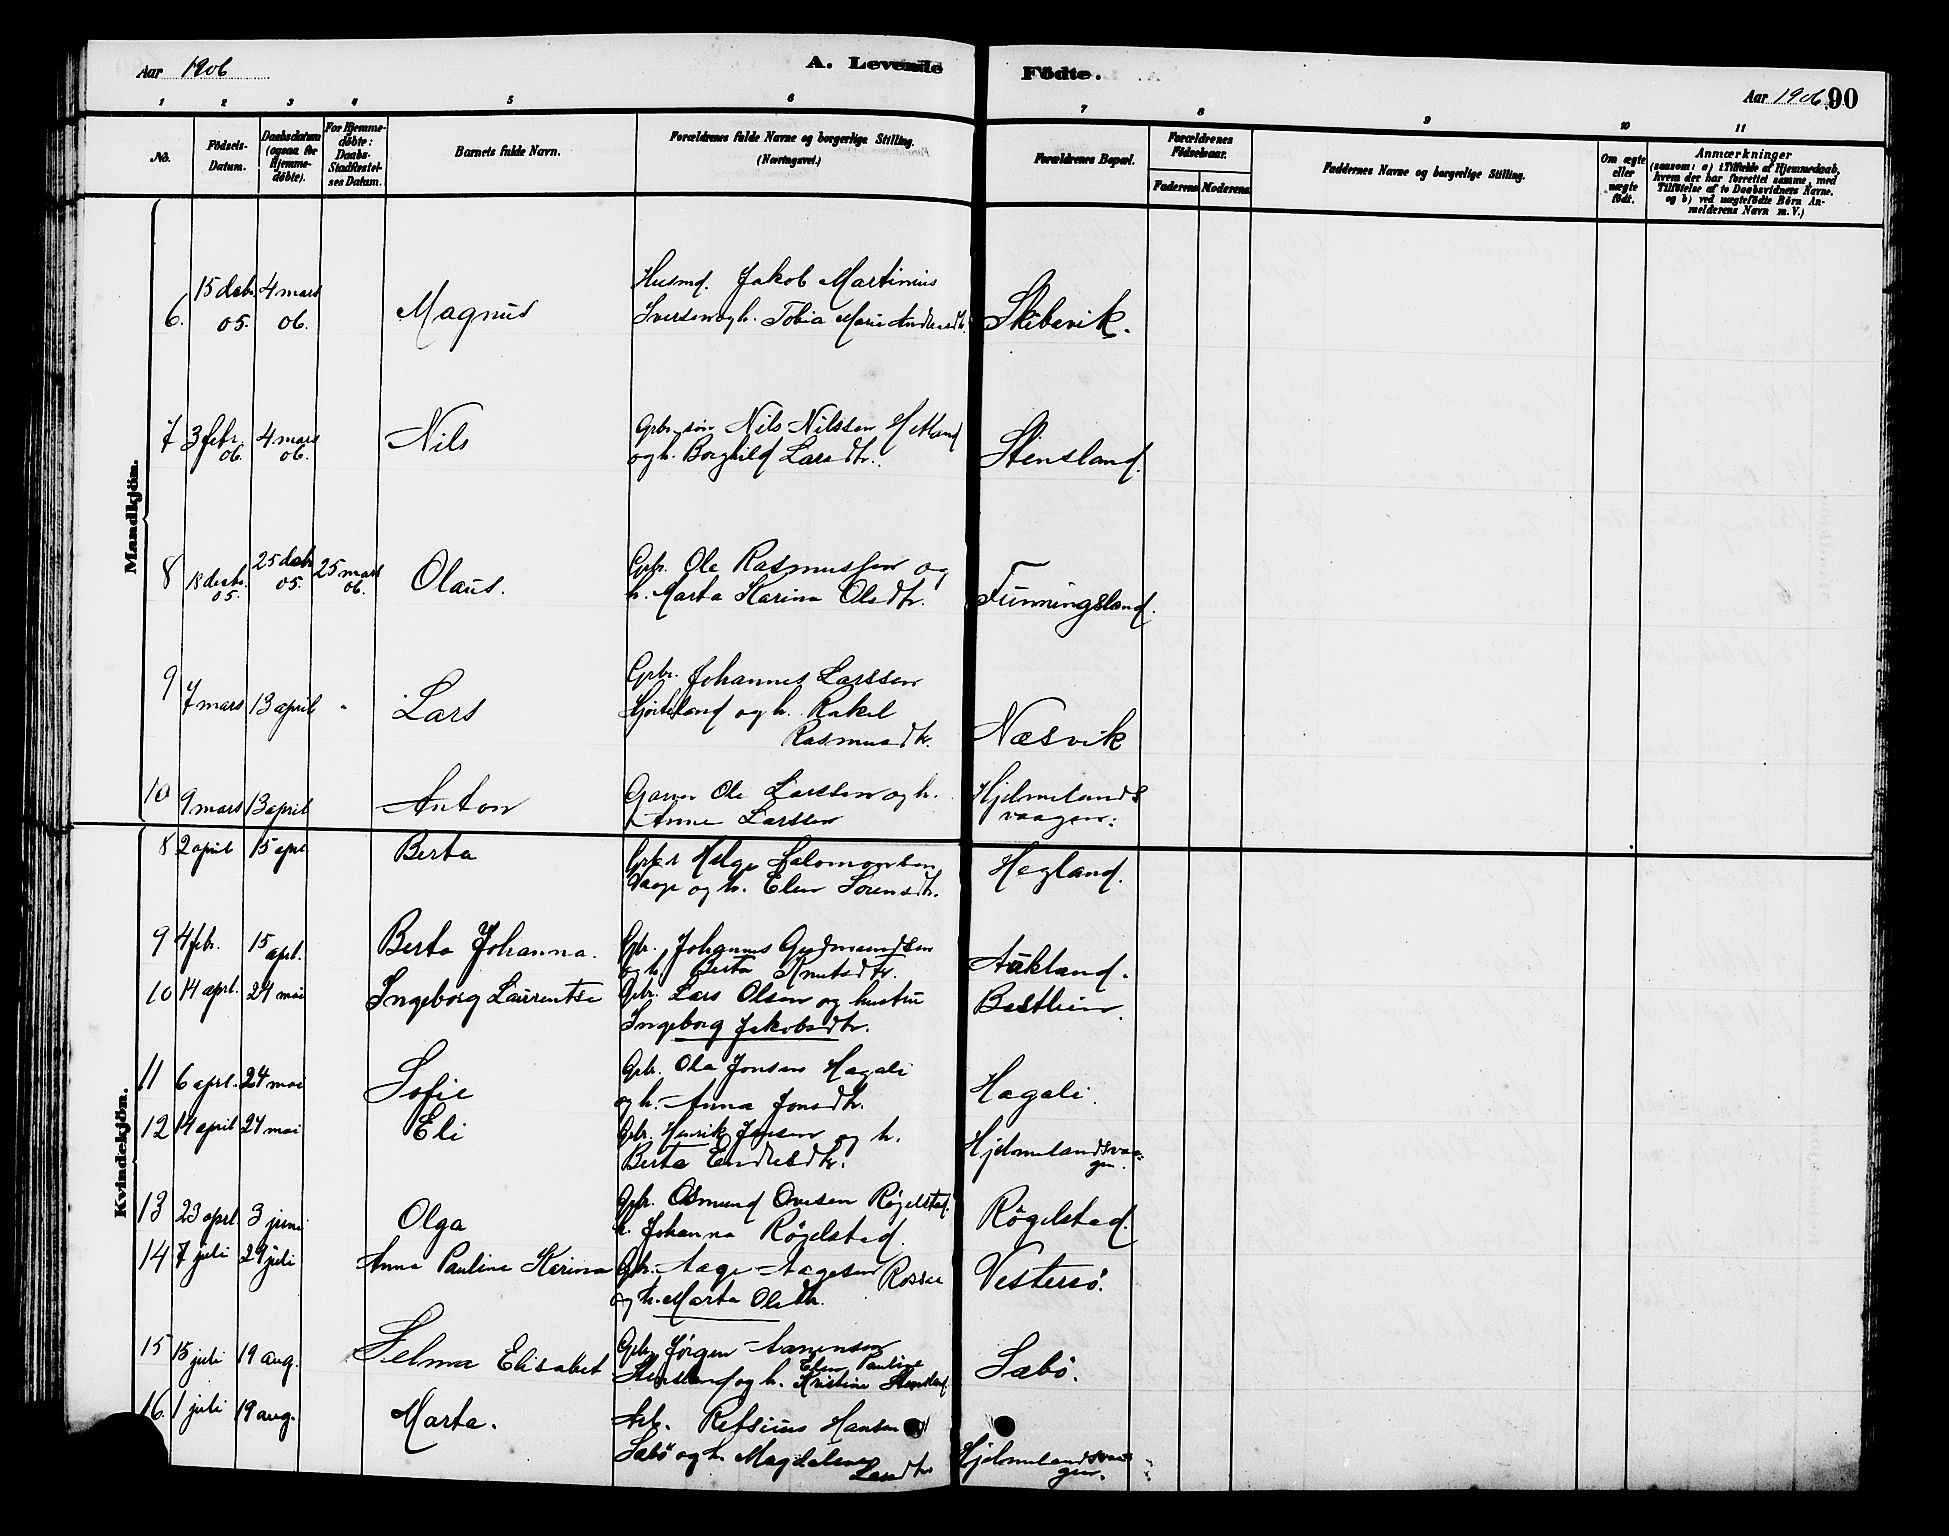 Aar 1906
A. Levende
Fødte.
Aar 1906. 90
1 2 3 4 5 6 7 8 9 10 11
No.
Fødsels-Datum.
Daabsdatum (ogsaa for Hjemme-døbte).
For Hjemme-døbte: Daabs-Stadfæstel-ses Datum.
Barnets fulde Navn.
Forældrenes fulde Navne og borgerlige Stilling. (Næringsvei.)
Forældrenes Bopæl.
Forældrenes Fødselsaar.
Faderens Moderens
Faddernes Navne og borgerlige Stilling.
Om ægte eller uægte født.
Anmærkninger
(saasom: a) i Tilfælde af Hjemmedaab,
hvem der har forrettet samme, med
Tilføielse af to Daabsvidners Navne.
og b) ved uægtefødte Børn An-
melderens Navn m. V.)
Mandkjön.
6. 15 debr. 05. 4 mars 06. Magnus
Husmd. Jakob Martinius
Iversen og h. Tobia Marie Andreasdtr.
Skibevik.
7 3 febr. 06. 4 mars 06. Nils
Grbr. søn Nils Nilssen Hetland
og h. Borghild Larsdtr.
Stensland.
8 18 decbr. 05. 25 debr 05. 25 mars 06. Olaus.
Gbr. Ole Rasmussen og
h. Marta Karina Olsdtr.
Funningsland.
9 7 mars 13 april " Lars
Gbr. Johannes Larssen
og h. Rakel
Rasmusdtr.
Næsvik
10 9 mars 13 april Anton
Garver Ole Larssen og h.
Anne Larssen
Hjelmelands
vaagen.
Kvindekjön.
8 2 april 15 apr Berta
Gbr Helge Salomonsen
Vaage og h. Elen Sorensdtr.
Hegland.
9 4 febr. 15 apr. Berta Johanna.
Gbr. Johannes Gudmundsen
og h. Berta Knutsdtr.
Aukland.
10 14 aprl. 24 mai Ingeborg Laurentse
Gbr. Lars Olsen og hustru
Ingeborg Jakobsdtr.
Bastlien.
11 6 aprl. 24 mai Sofie
Gbr. Ola Jonsen Hagali
og h. Anna Jonsdtr.
Hagali.
12 14 april 24 mai Eli
Gbr. Henrik Jonsen og h.
Berta Endresdtr.
Hjelmelandsvaa-
gen.
13 23 aprl 3 juni Olga
Gbr. Osmund Ovesen Røgelstad.
h. Johanna Røgelstad.
Røgelstad.
14 7 juli 29 juli Anna Pauline Karina
Gbr. Aage Aagesen Rossee
og h. Marta Olsdtr.
Vestersø.
15 15 juli 19 aug. Selma Elisabet
Gbr. Jørgen Aanensen
Stensland og h. Elen Pauline Kristine Stensland.
Sæbø.
16. 1 juli 19 aug. Marta.
Arb. Retsius Hansen
Sæbø og h. Magdalena
Larsdtr
Hjelmelandsvaa-
gen.